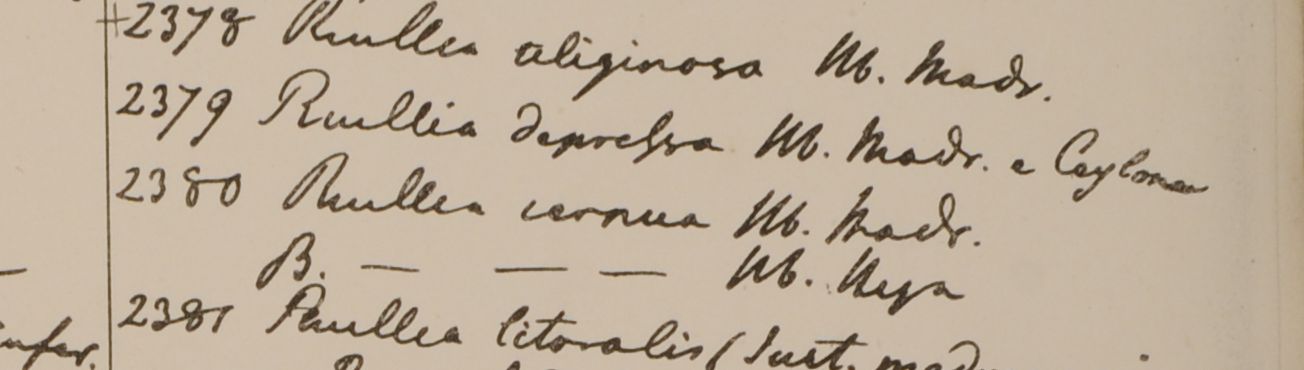 +2378 Ruellea uliginosa Hb. Madr.
2379 Ruellia depressa Hb. Madr. e Ceylona
2380 Ruellea cernua Hb. Madr.
B. — — — Hb. Heyn
2381 Ruellea litoralis (